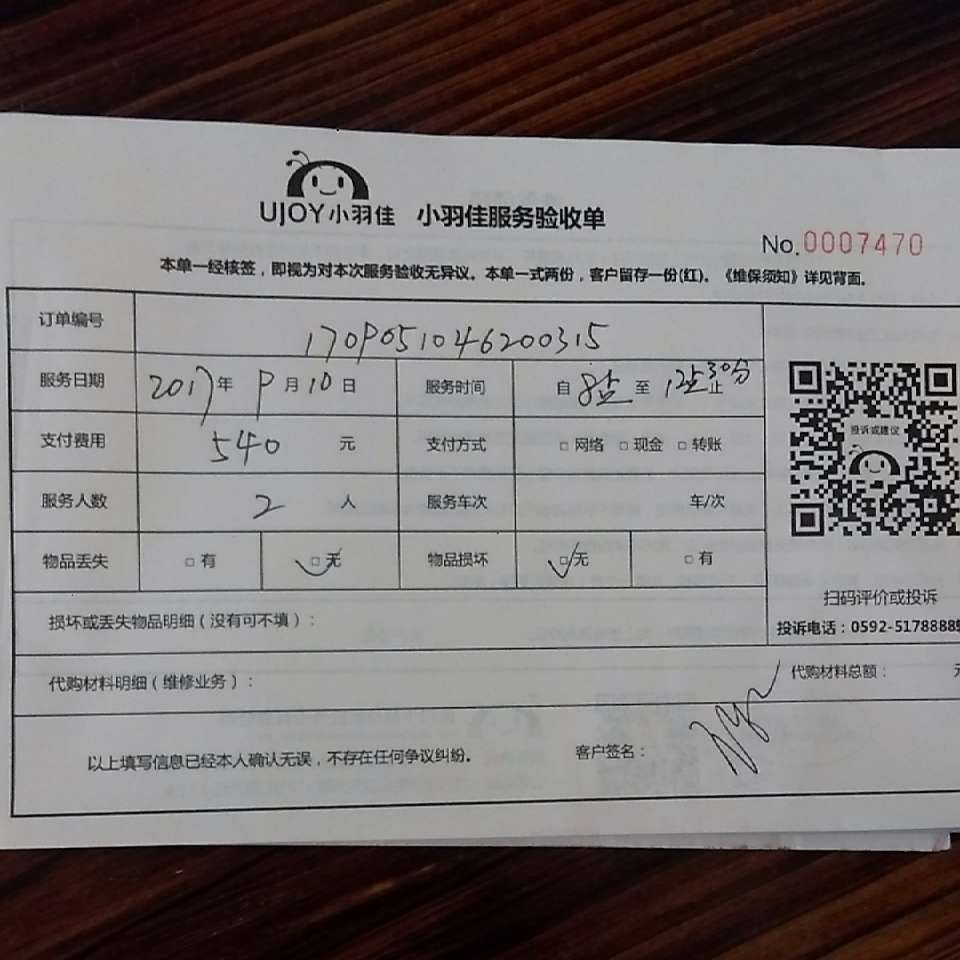 UJOY小羽佳 小羽佳服务验收单
No.0007470
本单一经核签，即视为对本次服务验收无异议。本单一式两份，客户留存一份(红)。《维保须知》详见背面。
订单编号 1709051046200315
服务日期 2017年9月10日 服务时间 自8点至12点30分止
支付费用 540 元 支付方式 □网络 □现金 □转账
投诉或建议
服务人数 2 人 服务车次 车/次
物品丢失 □有 □无 物品损坏 □无 □有
扫码评价或投诉
损坏或丢失物品明细（没有可不填）：
投诉电话：0592-5178889
代购材料明细（维修业务）： 代购材料总额： 元
以上填写信息已经本人确认无误，不存在任何争议纠纷。 客户签名：